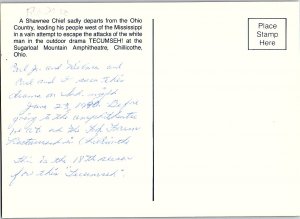 A Shawnee Chief sadly departs from the Ohio
Country, leading his people west of the Mississippi
in a vain attempt to escape the attacks of the white
man in the outdoor drama TECUMSEH! at the
Sugarloaf Mountain Amphitheatre, Chillicothe,
Ohio.
Place
Stamp
Here
Earl Jr. and
and I seen this
drama on night
June 23, 1990. Before
going to the amphitheatre
we at the
Restaurant in Chillicothe
This is the 18th season
for this "Tecumseh".